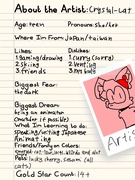 About the Artist: Crystal-Cat
Age: teen
Pronouns: she/her
Where I'm From: Japan/taiwan
Likes:
1 gaming/drawing
2 skiing
3 friends
Dislikes:
1 curry (curry)
2 vomiting
3
Biggest Fear:
the dark
Biggest Dream:
being an animator
What I'm Learning to do:
speaking/writing Japanese
Animating
Friends/Family on Colors:
Pets: lucky, cherry, sesame (all cats)
Gold Star Count: 14+
Artis